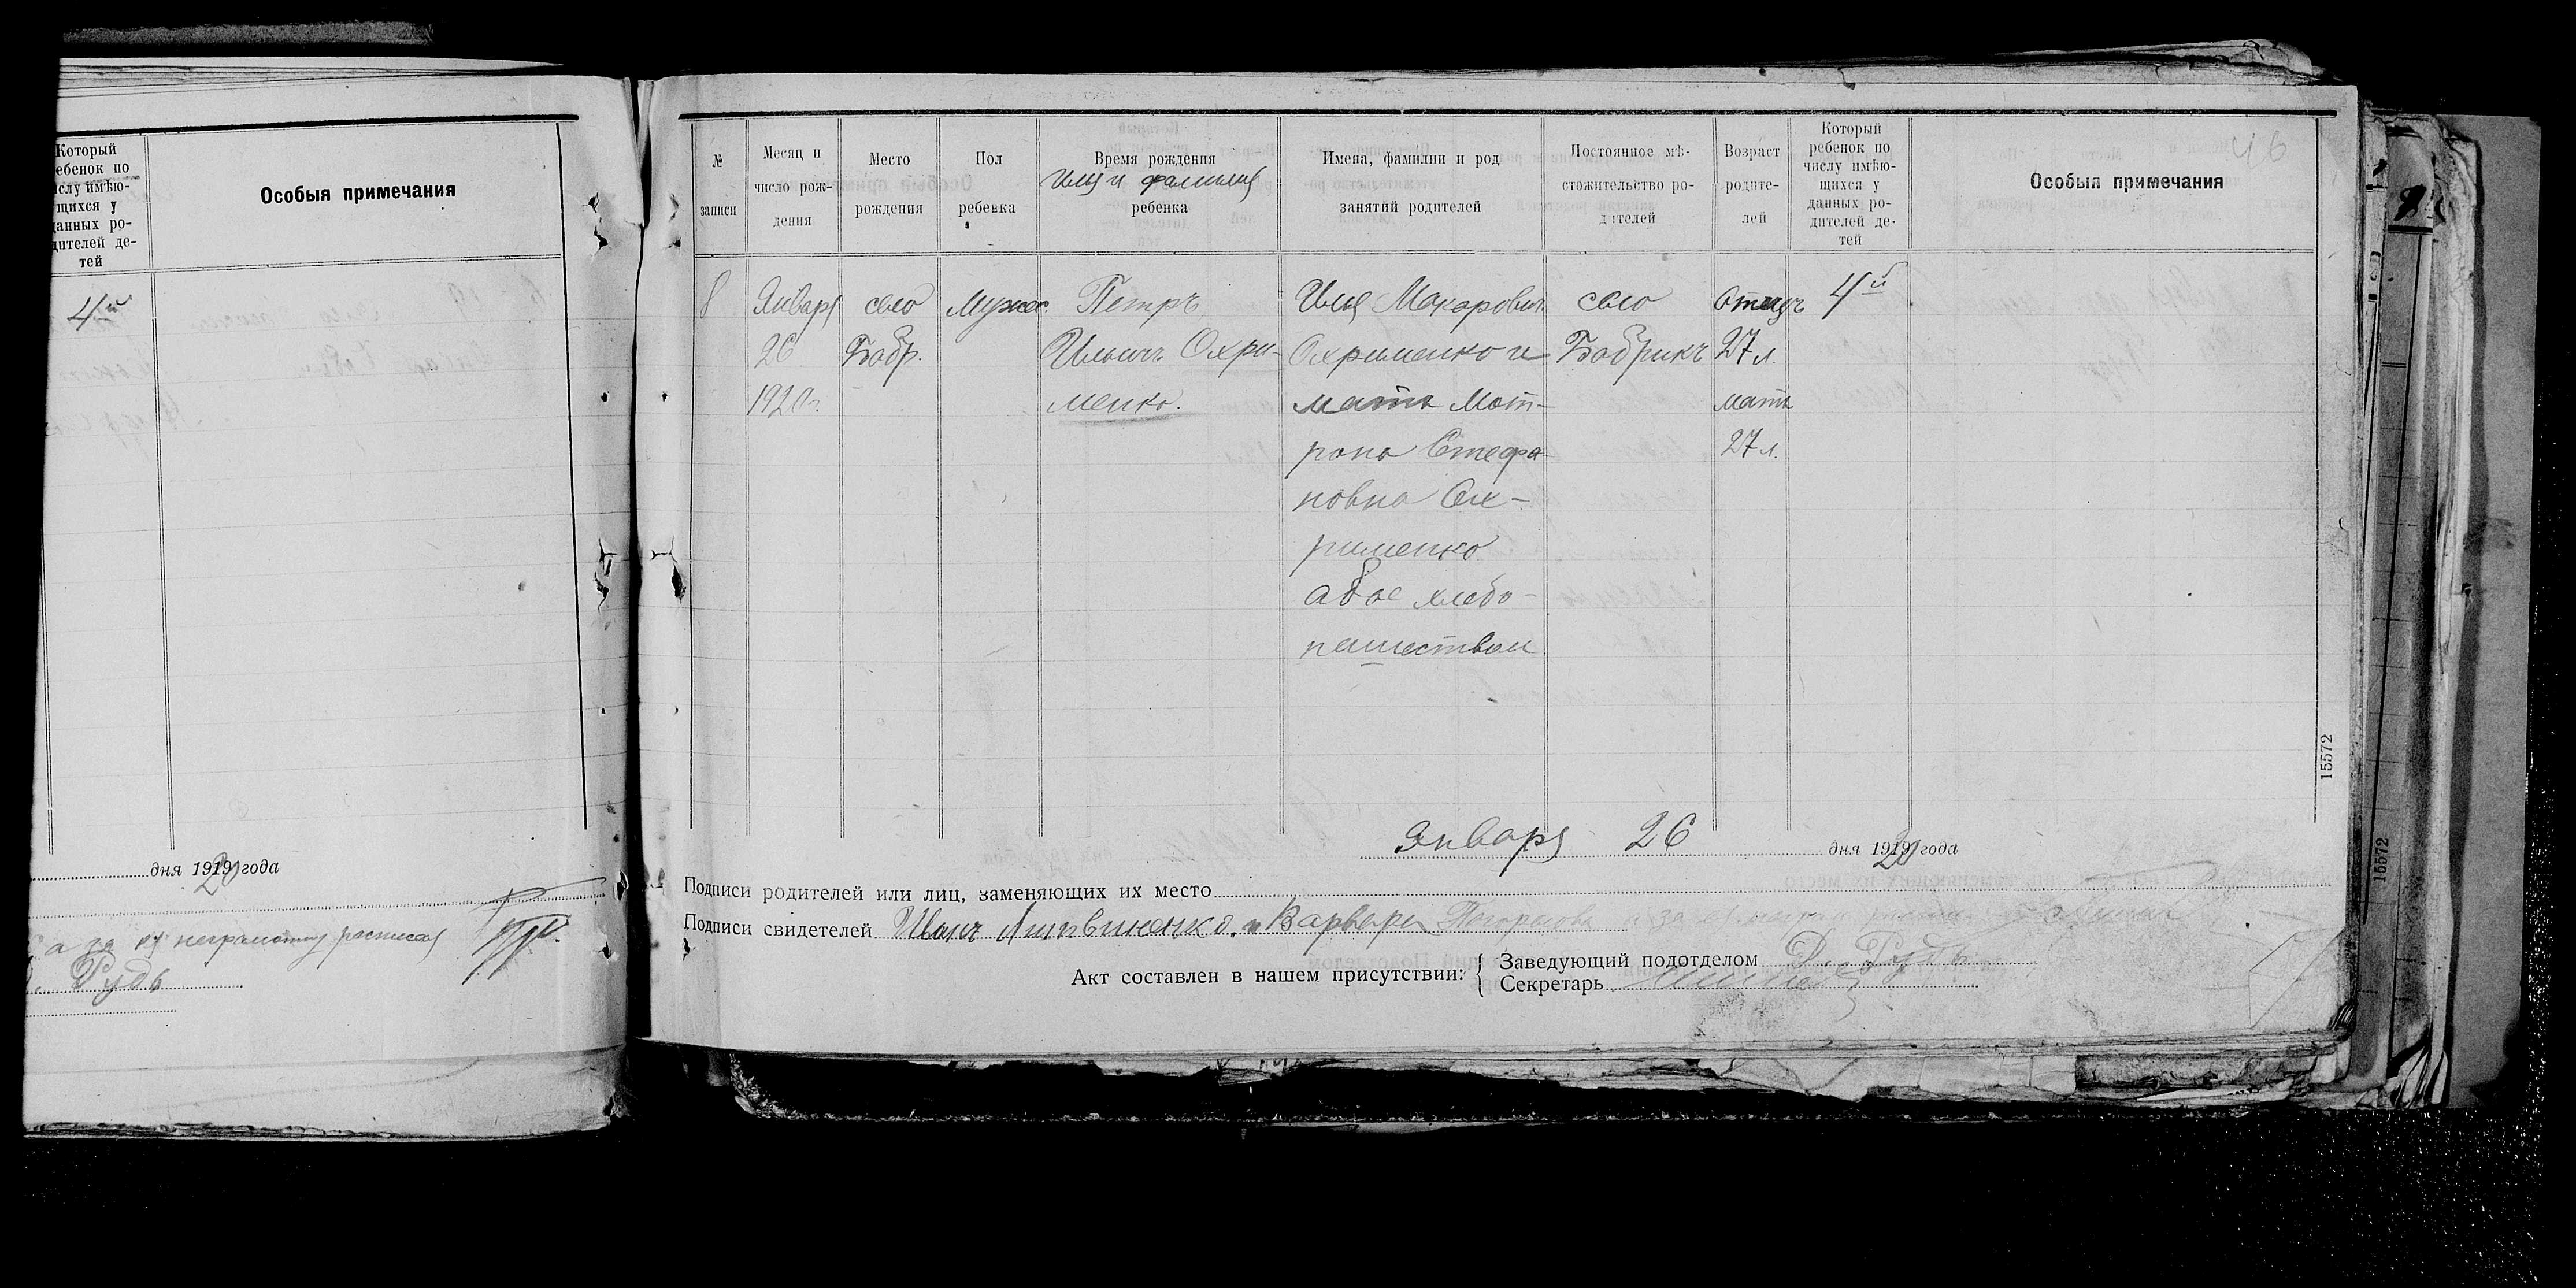 Который
ебенок по
ислу имѣю-
щихся у
данных ро-
дителей де-
тей
Особыя примечания
4й
дня 1919 20 года
а за ея неграмотну росписал
Рудь
46
№
записи
Месяц и
число рож-
дения
Место
рождения
Пол
ребенка
Время рождения
Имя и фамилия
ребенка
Имена, фамилии и род
занятий родителей
Постоянное мѣ-
стожительство ро-
дителей
Возраст
родите-
лей
Который
ребенок по
числу имѣю-
щихся у
данных ро-
дителей де-
тей
Особыя примечания
8 Января село Мужес. Петръ Илия Макарович село отецъ 4й
26 Бобр. Ильичъ Охри- Охрименко и Бобрикъ 27 л.
1920 г. менко. мать Мот- мать
рона Стефа- 27 л.
новна Ох-
рименко
абое хлебо-
пашеством
15572
15572
Января 26 дня 1919 20 года
Подписи родителей или лиц, заменяющих их место
Подписи свидетелей Иванъ Литвиненко. и Варвара
Акт составлен в нашем присутствии: Заведующий подотделом Д. Рудь
Секретарь